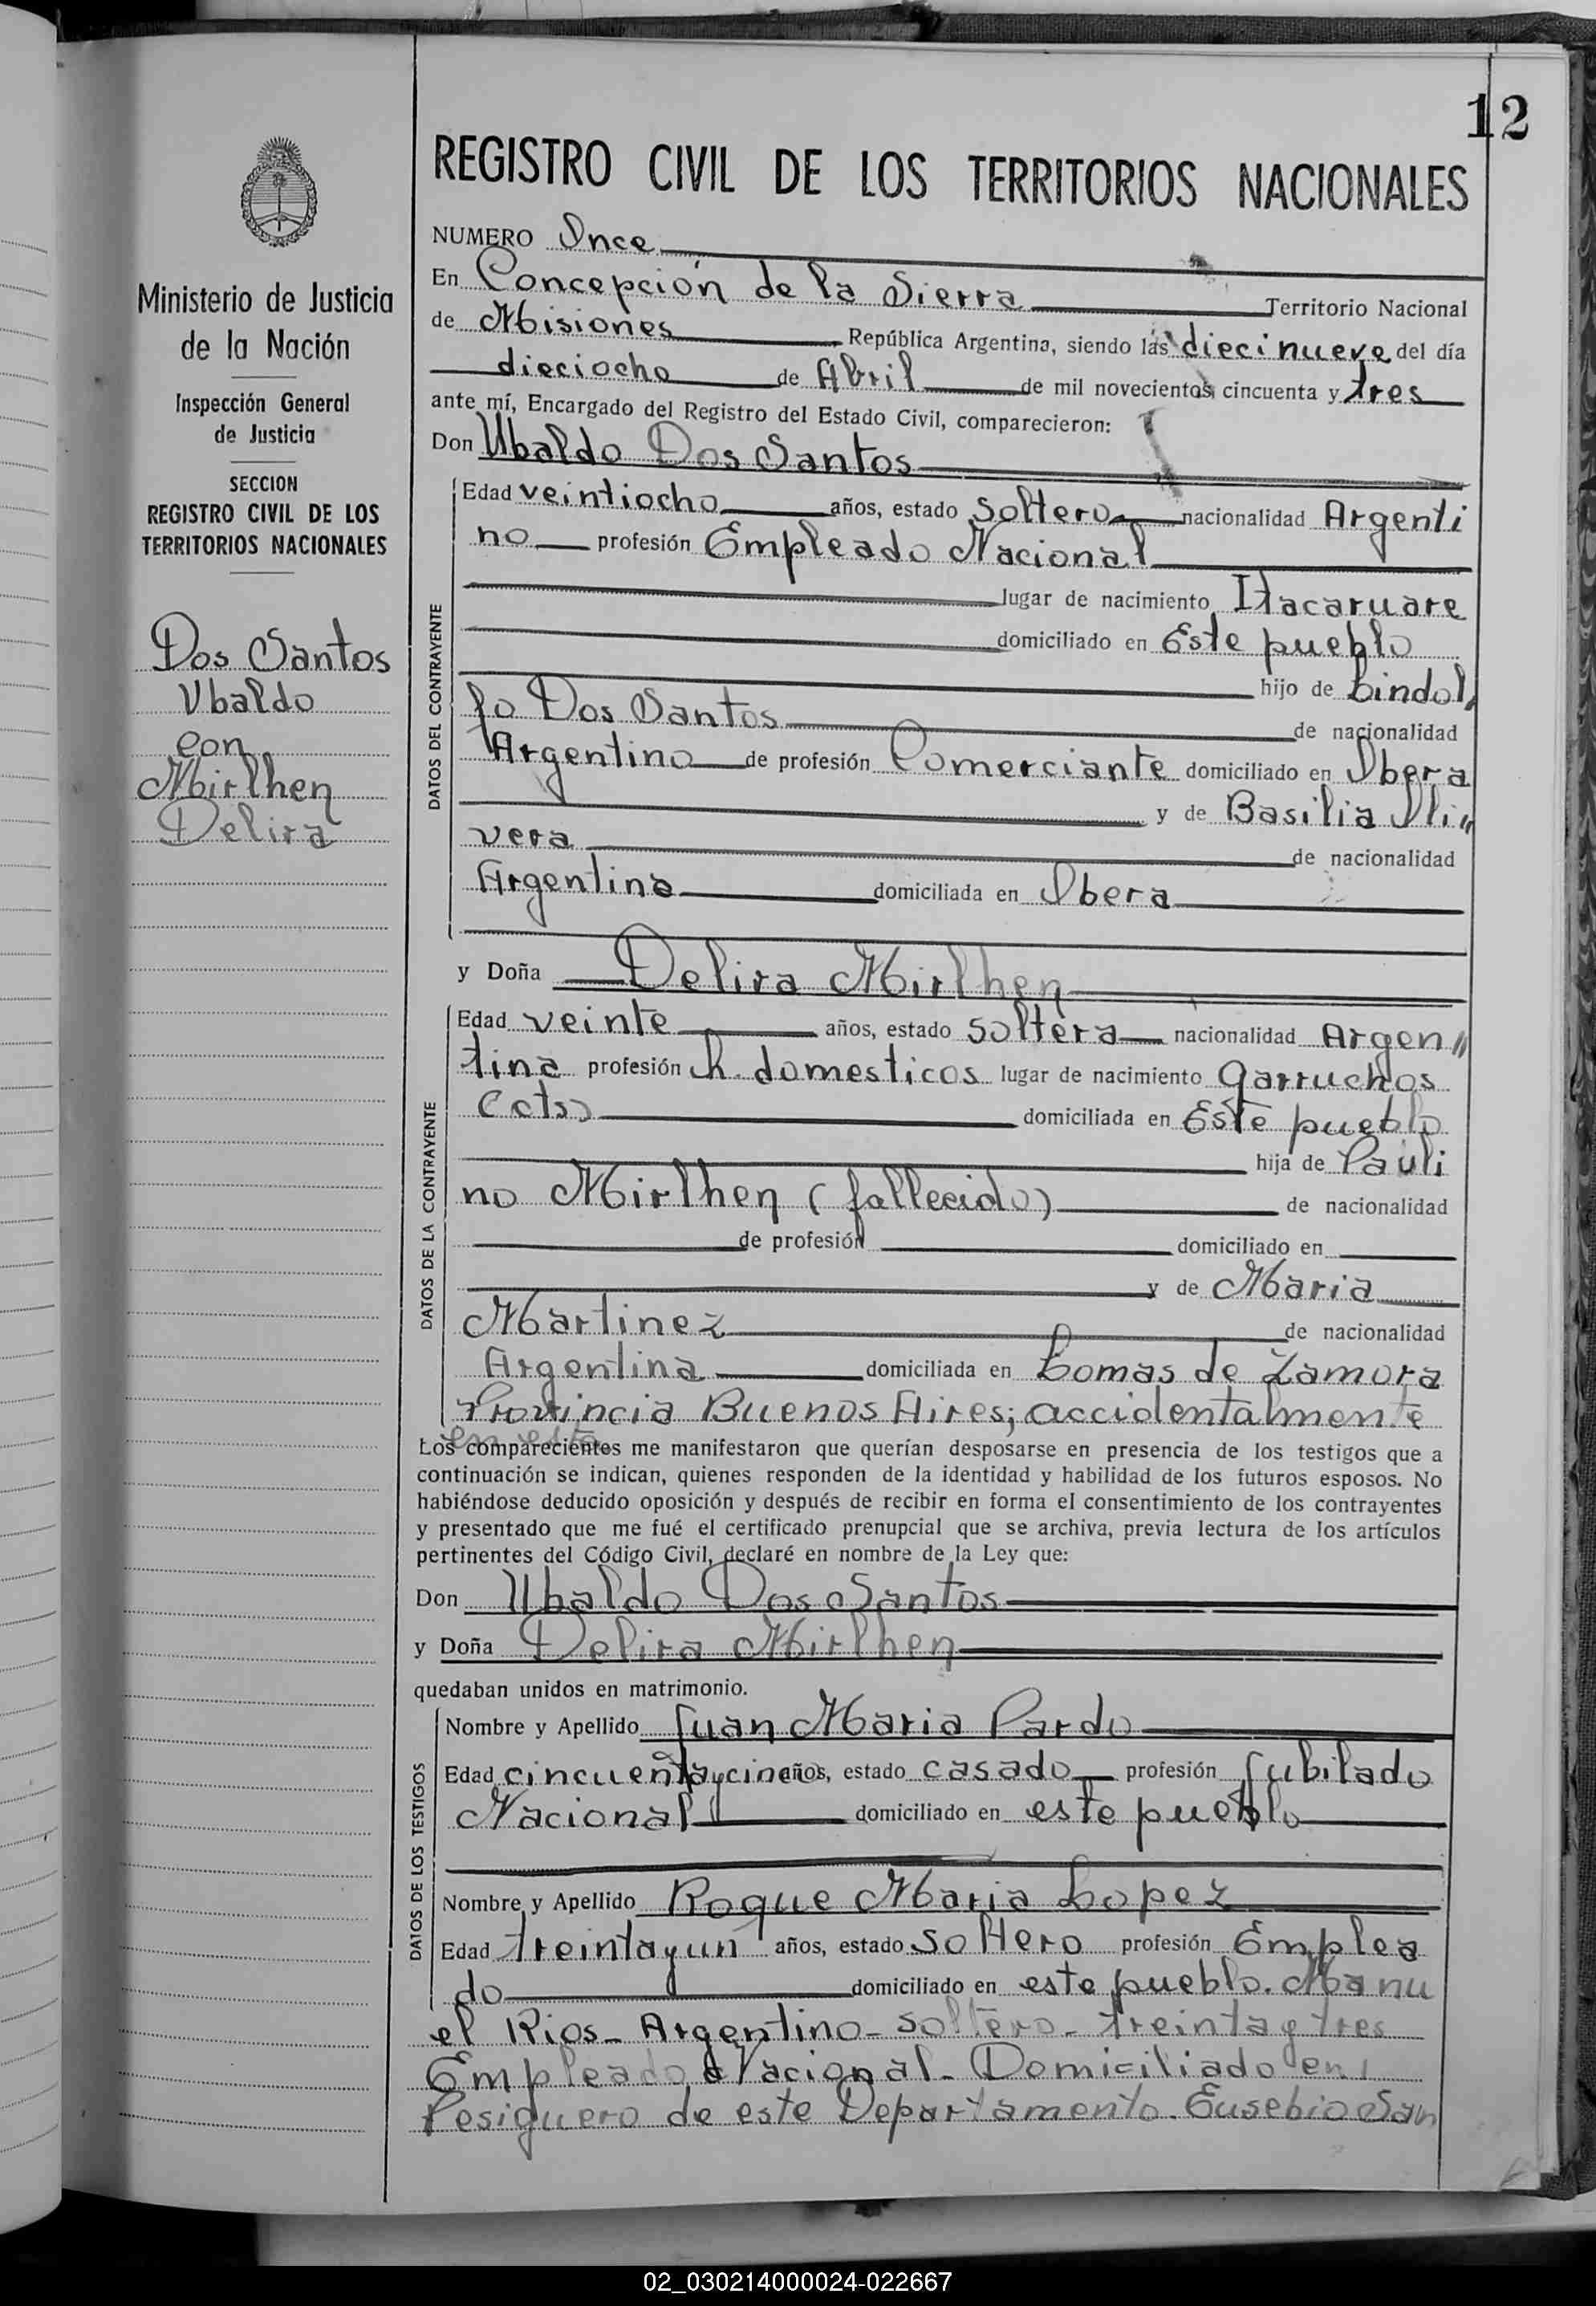 12
REGISTRO CIVIL DE LOS TERRITORIOS NACIONALES
NUMERO Once
En Concepción de la Sierra Territorio Nacional
de Misiones República Argentina, siendo las diecinueve del día
dieciocho de Abril de mil novecientos cincuenta y tres
ante mí, Encargado del Registro del Estado Civil, comparecieron:
Don Ubaldo Dos Santos
Edad veintiocho años, estado soltero nacionalidad Argenti
no profesión Empleado Nacional
lugar de nacimiento Itacaruare
domiciliado en Este pueblo
hijo de Lindol,
fo Dos Santos de nacionalidad
Argentino de profesión Comerciante domiciliado en Ibera
y de Basilia Oli"
vera de nacionalidad
Argentina domiciliada en Ibera
DATOS DEL CONTRAYENTE
y Doña Delira Mirlhen
Edad veinte años, estado soltera nacionalidad Argen"
tina profesión h. domesticos lugar de nacimiento Garruchos
(cts) domiciliada en Este pueblo
hija de Pauli
no Mirlhen (fallecido) de nacionalidad
de profesión domiciliado en
y de Maria
Martinez de nacionalidad
Argentina domiciliada en Lomas de Zamora
Provincia Buenos Aires; accidentalmente
en esta
DATOS DE LA CONTRAYENTE
Los comparecientes me manifestaron que querían desposarse en presencia de los testigos que a
continuación se indican, quienes responden de la identidad y habilidad de los futuros esposos. No
habiéndose deducido oposición y después de recibir en forma el consentimiento de los contrayentes
y presentado que me fué el certificado prenupcial que se archiva, previa lectura de los artículos
pertinentes del Código Civil, declaré en nombre de la Ley que:
Don Ubaldo Dos Santos
y Doña Delira Mirlhen
quedaban unidos en matrimonio.
Nombre y Apellido Juan Maria Pardo
Edad cincuentaycinco años, estado casado profesión Jubilado
Nacional domiciliado en este pueblo
Nombre y Apellido Roque Maria Lopez
Edad treintayun años, estado soltero profesión Emplea
do domiciliado en este pueblo. Manu
el Rios- Argentino- soltero- treinta y tres
Empleado Nacional- Domiciliado en
Pesiguero de este Departamento. Eusebio San
DATOS DE LOS TESTIGOS
Ministerio de Justicia
de la Nación
Inspección General
de Justicia
SECCION
REGISTRO CIVIL DE LOS
TERRITORIOS NACIONALES
Dos Santos
Ubaldo
con
Mirlhen
Delira
02_030214000024-022667